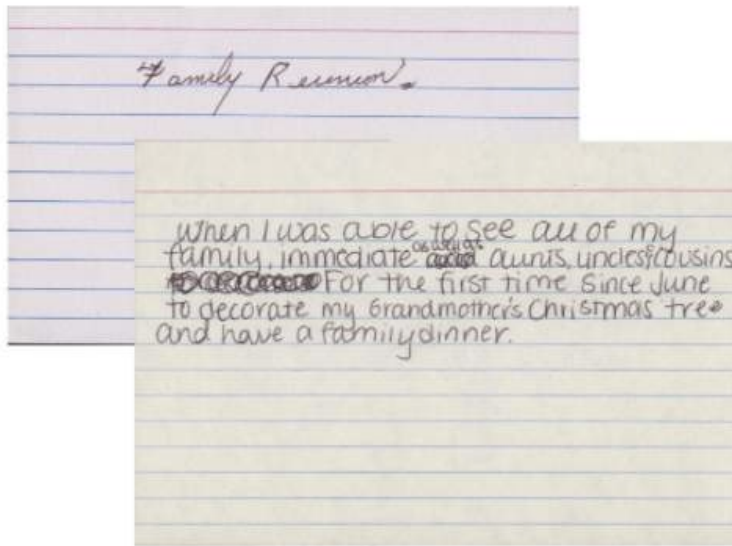 "Family Reunion".
When I was able to see all of my
family, immediate as well as aunts, uncles, cousins
For the first time since June
to decorate my Grandmother's Christmas tree
and have a family dinner.